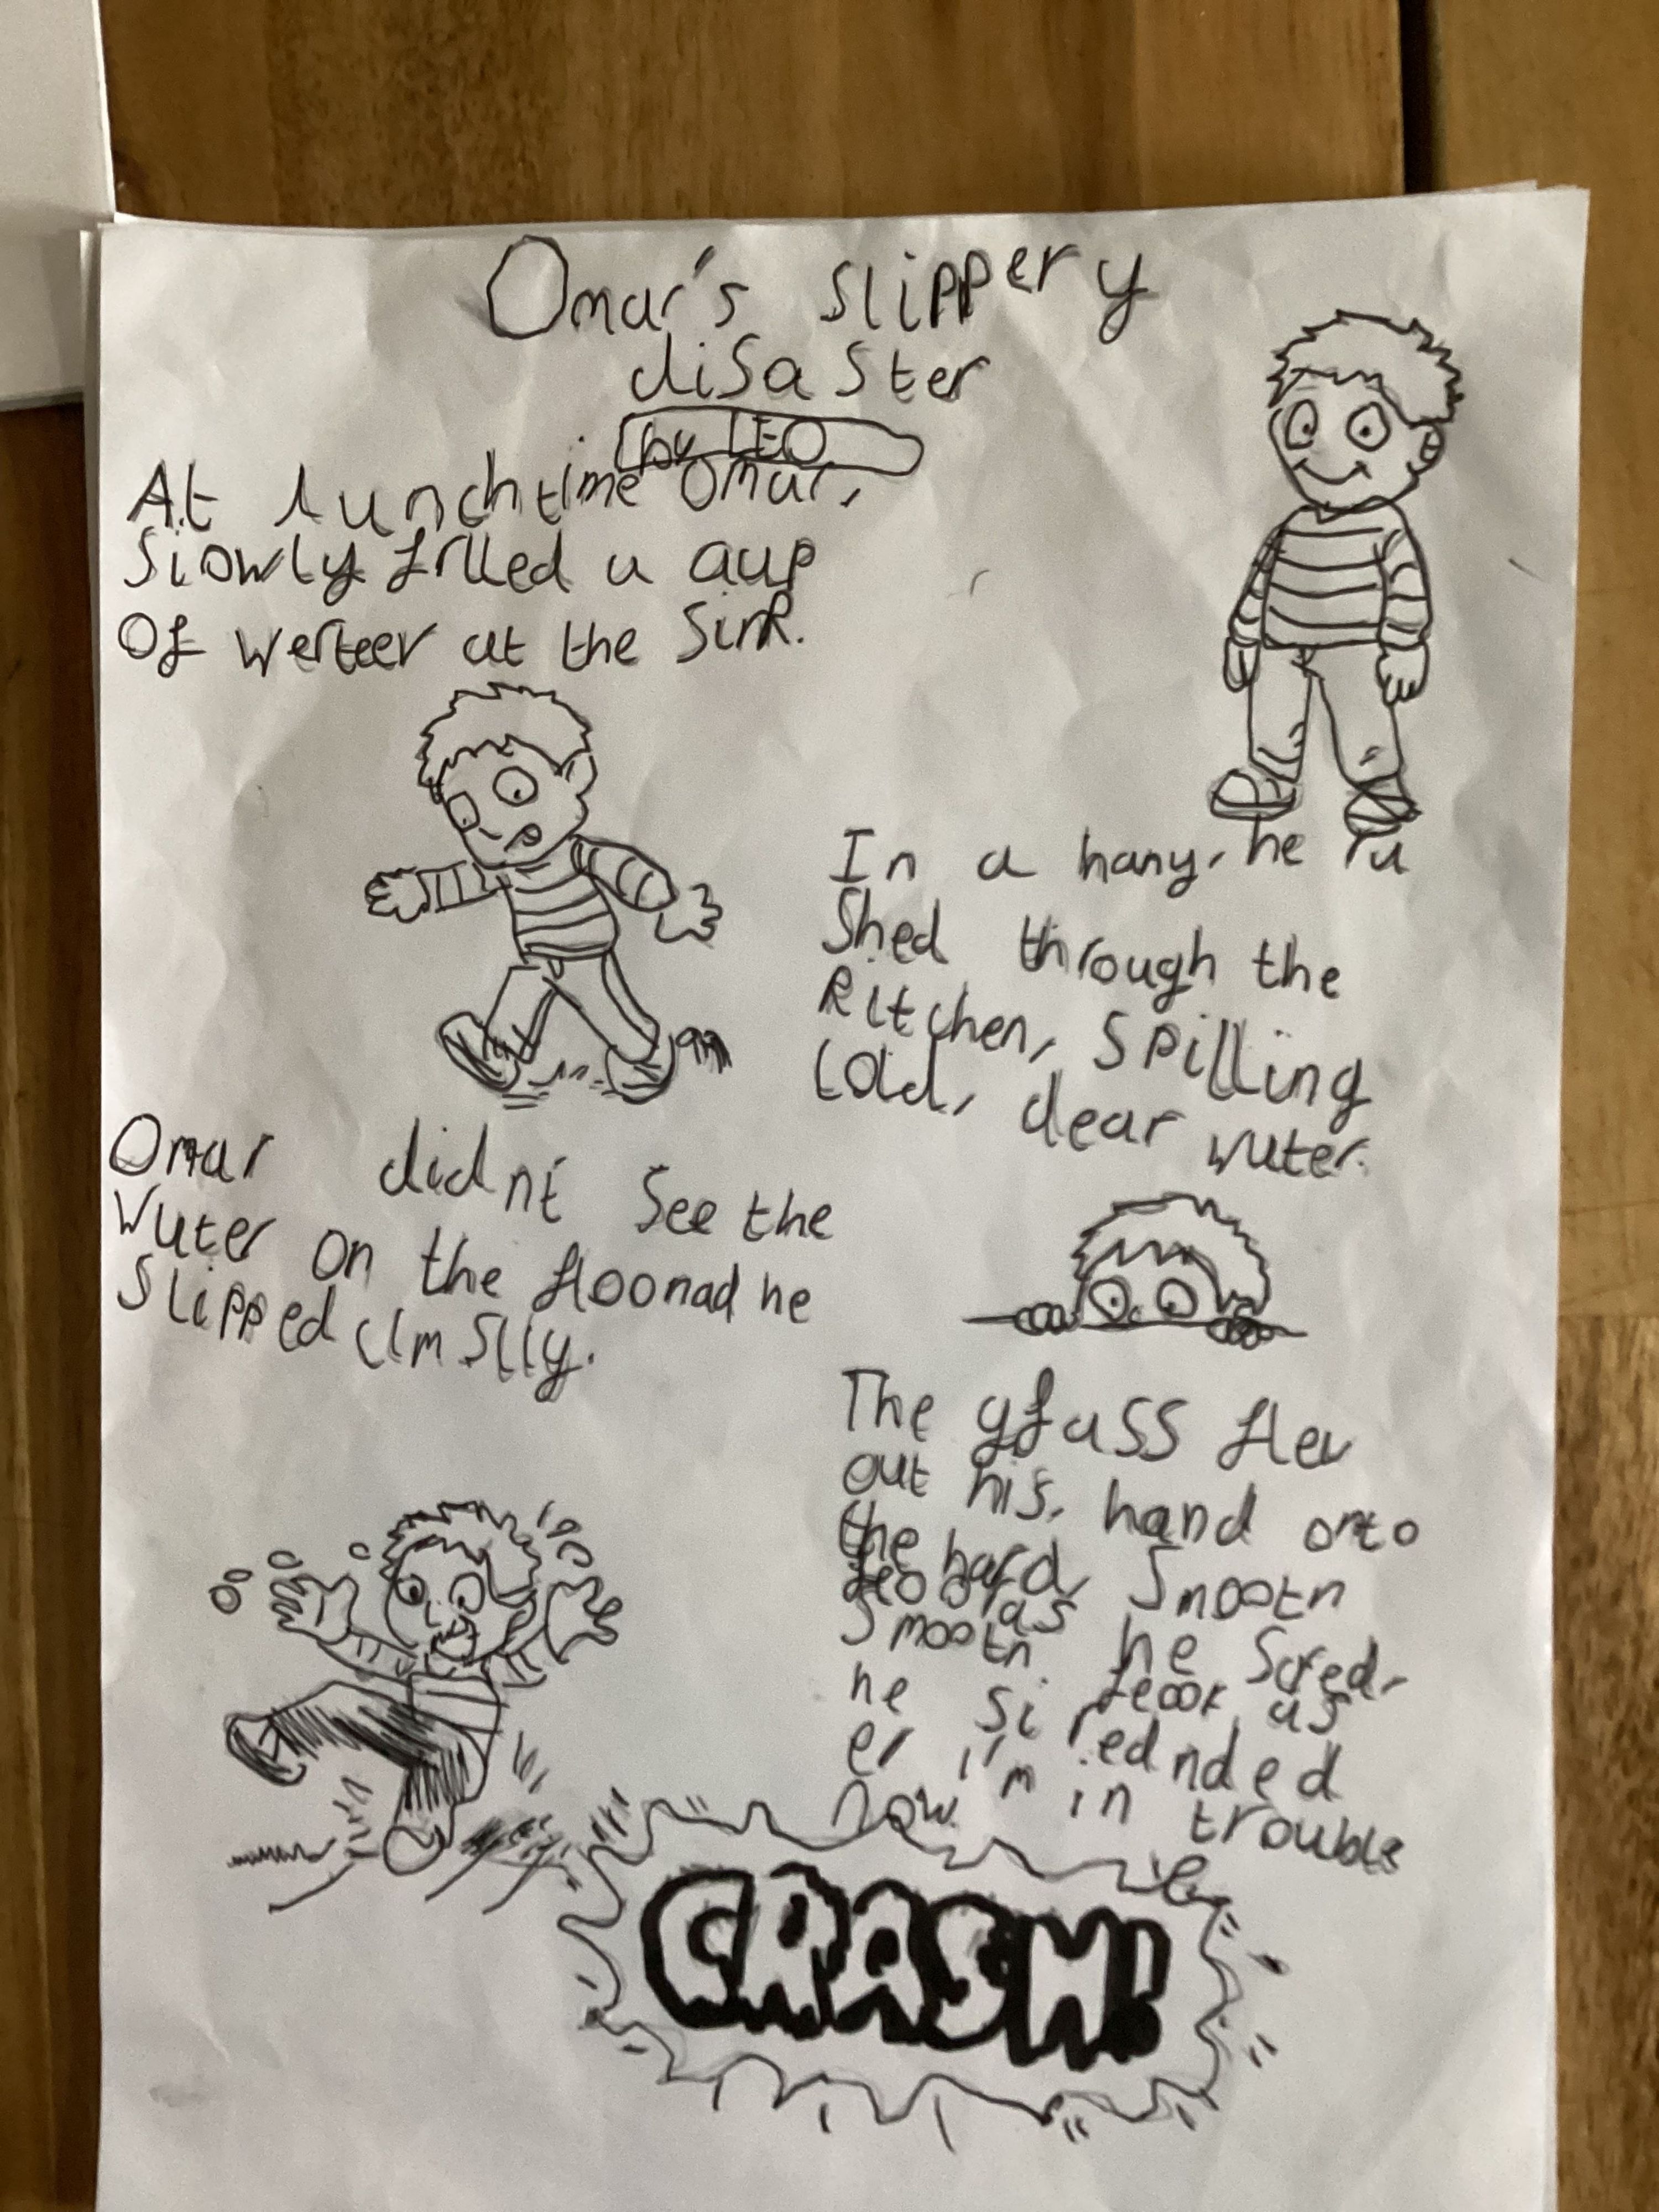 Omar's slippery
disaster
by LEO
At lunchtime Omar,
Slowly filled a cup
Of werteer at the Sink.
In a hurry, he ru
Shed through the
Kitchen, Spilling
Cold, clear water.
Omar didn't See the
Water on the floor and he
Slipped clmslly.
The glass flew
out his, hand onto
the hard, Smooth
Smooth. he Scred,
he as
er I'm in trouble
now.
CRASH!